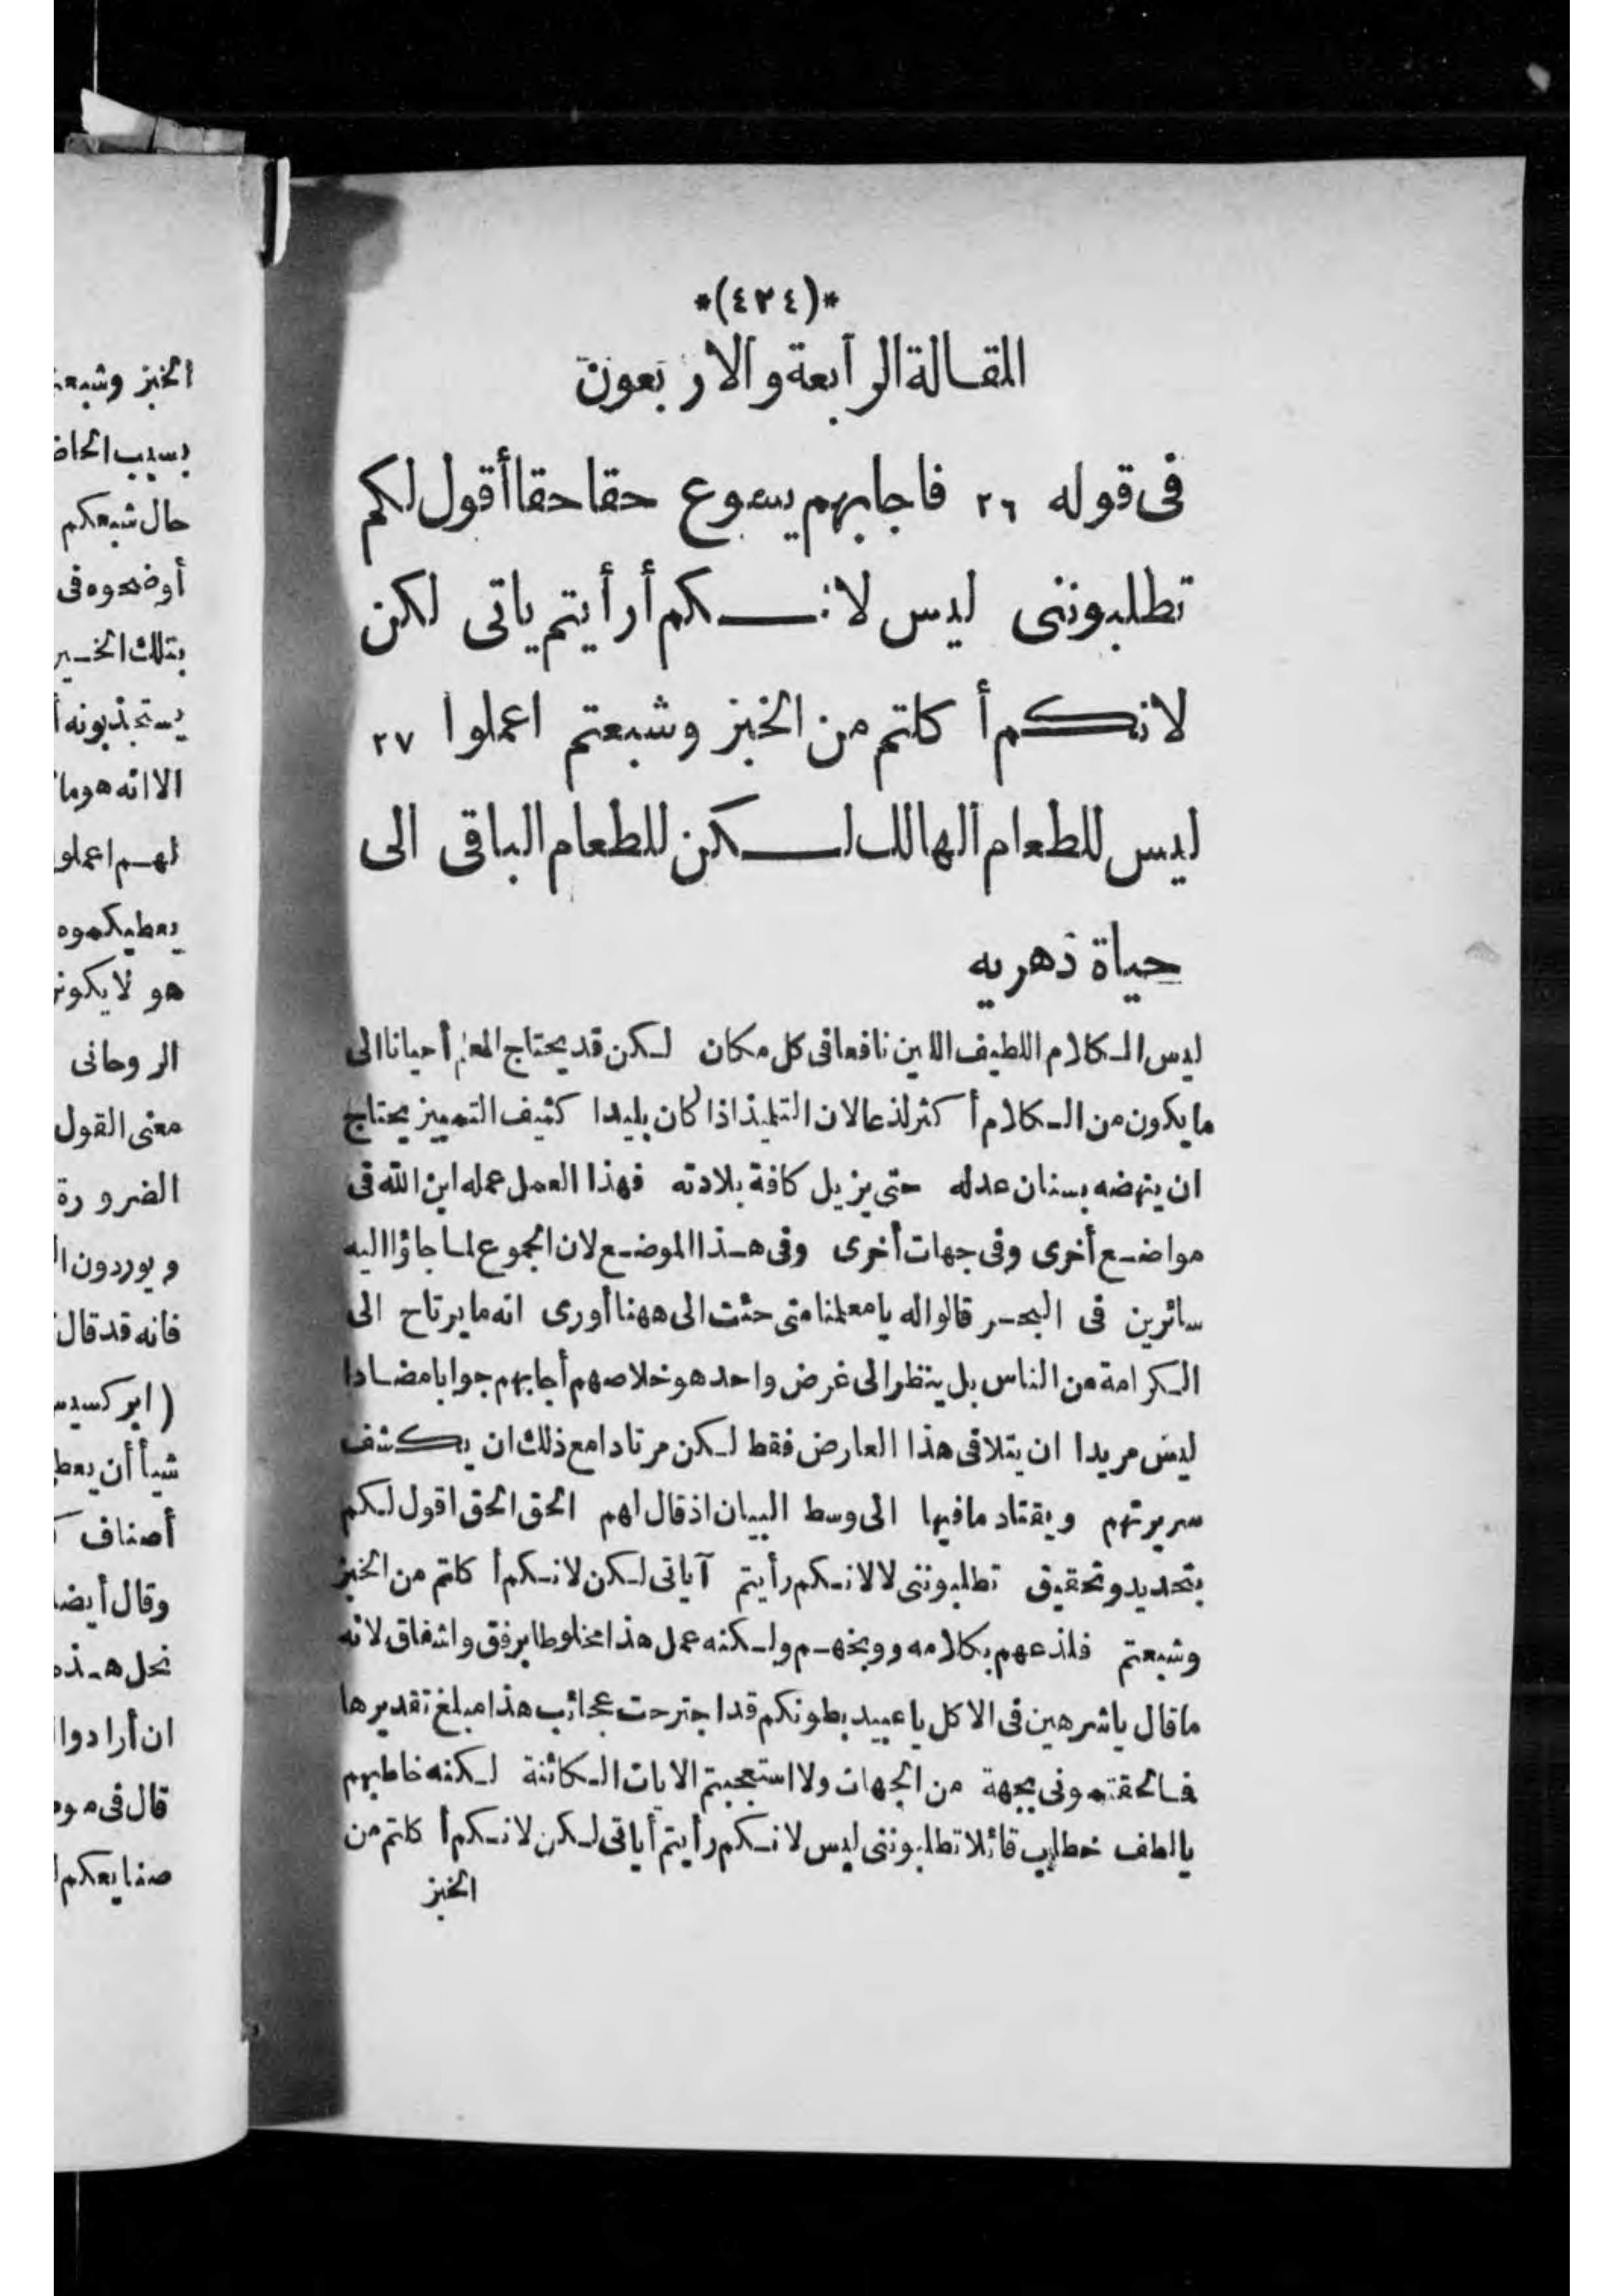 *(٤٢٤)*
المقالة الرابعة والاربعون
فى قوله ٢٦ فاجابهم يسوع حقا حقا أقول لكم
تطلبوننى ليس لانكم أرأيتم ياتى لكن
لانكم أكلتم من الخبز وشبعتم اعملوا ٢٧
ليس للطعام الهالك لكن للطعام الباقى الى
حياة دهريه
ليس الكلام اللطيف اللين نافعا فى كل مكان لكن قد يحتاج المعلم أحيانا الى
ما يكون من الكلام أكثر لذعا لان التلميذ اذا كان بليدا كثيف التمييز يحتاج
ان ينهضه بسنان عدله حتى يزيل كافة بلادته فهذا العمل عمله ابن الله فى
مواضع أخرى وفى جهات أخرى وفى هذا الموضع لان الجموع لما جاؤا اليه
سائرين فى البحر قالوا له يا معلمنا متى جئت الى ههنا أورى انه ما يرتاح الى
الكرامة من الناس بل ينظر الى غرض واحد هو خلاصهم أجابهم جوابا مضادا
ليس مريدا ان يتلافى هذا العارض فقط لكن مرتادا مع ذلك ان يكشف
سريرتهم ويقتاد ما فيها الى وسط البيان اذ قال لهم الحق الحق اقول لكم
بتحديد وتحقيق تطلبوننى لا لانكم رأيتم آياتى لكن لانكم أكلتم من الخبز
وشبعتم فلذعهم بكلامه ووبخهم ولكنه عمل هذا مخلوطا برفق واشفاق لانه
ما قال يا شرهين فى الاكل يا عبيد بطونكم قد اجترحت عجائب هذا مبلغ تقديرها
فما لحقتمونى بجهة من الجهات ولا استعجبتم الايات الكائنة لكنه خاطبهم
يالطف خطاب قائلا تطلبوننى ليس لانكم رأيتم أياتى لكن لانكم أكلتم من
الخبز
الخبز
بسبب
حال شبعكم
أوضحوه فى
بتلك
الا انه هو
لهم اعملوا
يعطيكموه
هو لا
الروحانى
معنى القول
الضرورة
ويوردون
فانه قد قال
شيأ أن
أصناف
وقال
ان أرادوا
قال فى